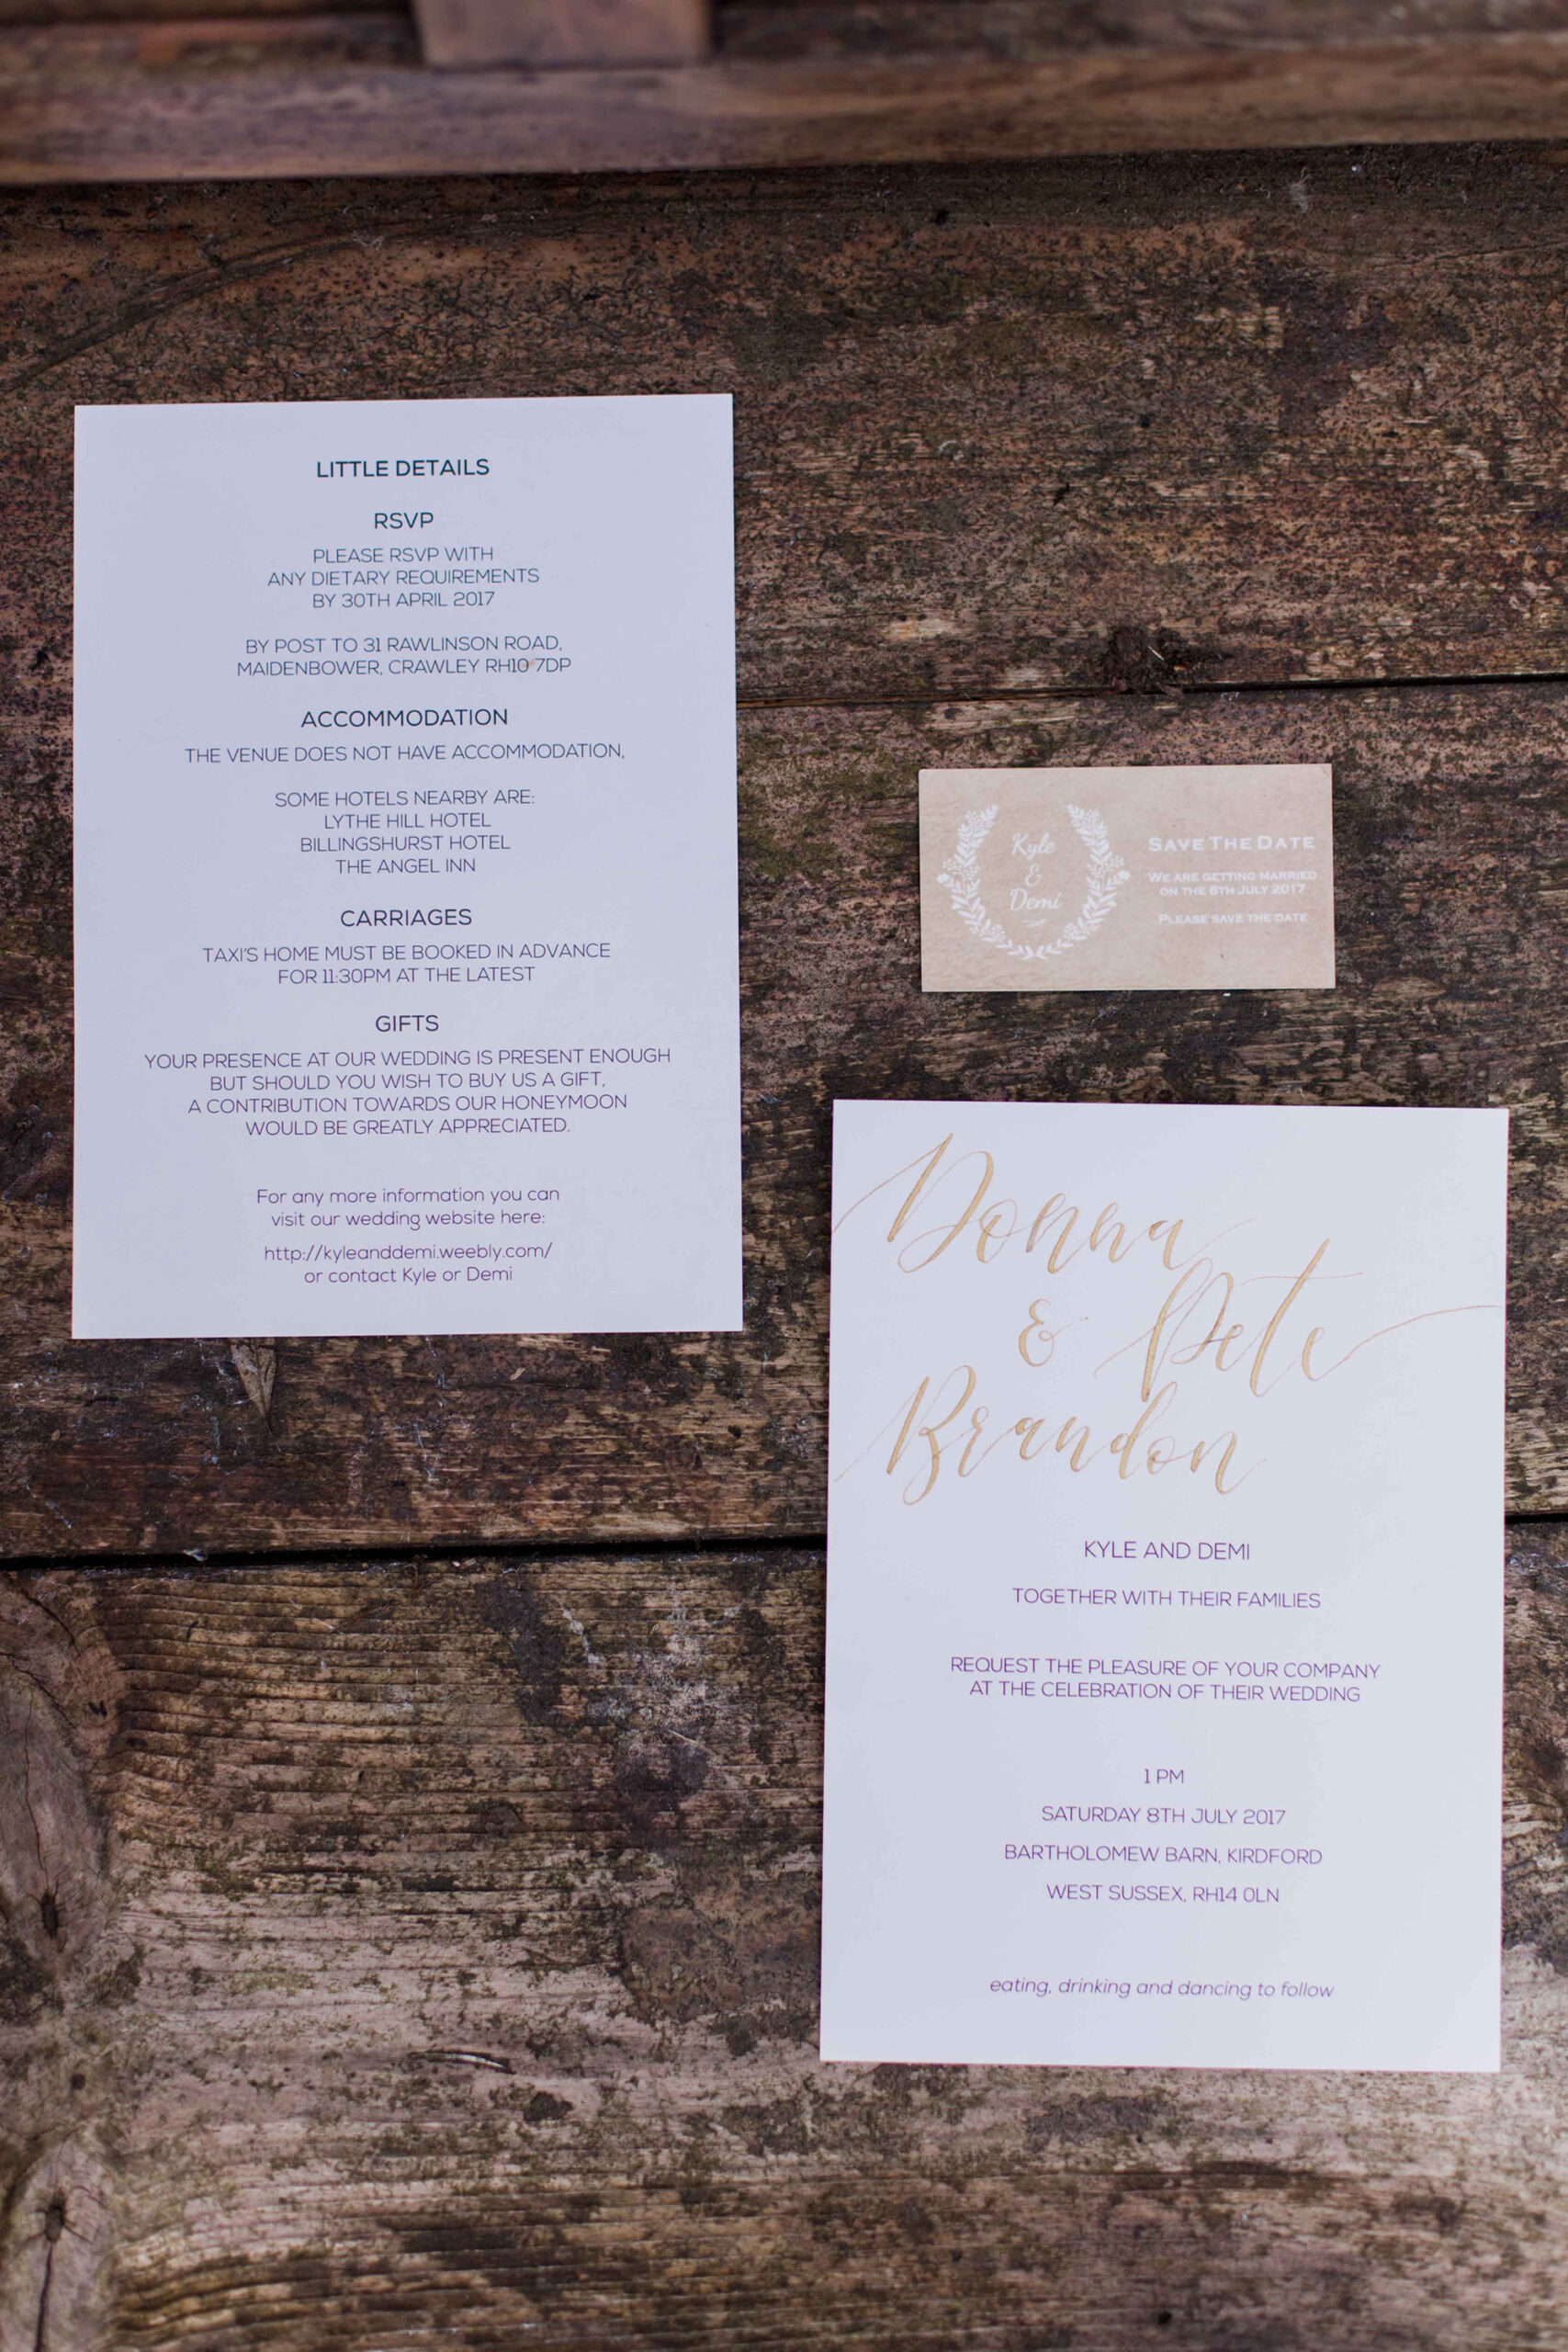 LITTLE DETAILS
RSVP
PLEASE RSVP WITH
ANY DIETARY REQUIREMENTS
BY 30TH APRIL 2017
BY POST TO 31 RAWLINSON ROAD,
MAIDENBOWER, CRAWLEY RH10 7DP
ACCOMMODATION
THE VENUE DOES NOT HAVE ACCOMMODATION,
SOME HOTELS NEARBY ARE:
LYTHE HILL HOTEL
BILLINGSHURST HOTEL
THE ANGEL INN
CARRIAGES
TAXI'S HOME MUST BE BOOKED IN ADVANCE
FOR 11:30PM AT THE LATEST
GIFTS
YOUR PRESENCE AT OUR WEDDING IS PRESENT ENOUGH
BUT SHOULD YOU WISH TO BUY US A GIFT,
A CONTRIBUTION TOWARDS OUR HONEYMOON
WOULD BE GREATLY APPRECIATED.
For any more information you can
visit our wedding website here:
http://kyleanddemi.weebly.com/
or contact Kyle or Demi
Kyle
&
Demi
SAVE THE DATE
WE ARE GETTING MARRIED
ON THE 8TH JULY 2017
PLEASE SAVE THE DATE
Donna
& Pete
Brandon
KYLE AND DEMI
TOGETHER WITH THEIR FAMILIES
REQUEST THE PLEASURE OF YOUR COMPANY
AT THE CELEBRATION OF THEIR WEDDING
1 PM
SATURDAY 8TH JULY 2017
BARTHOLOMEW BARN, KIRDFORD
WEST SUSSEX, RH14 0LN
eating, drinking and dancing to follow